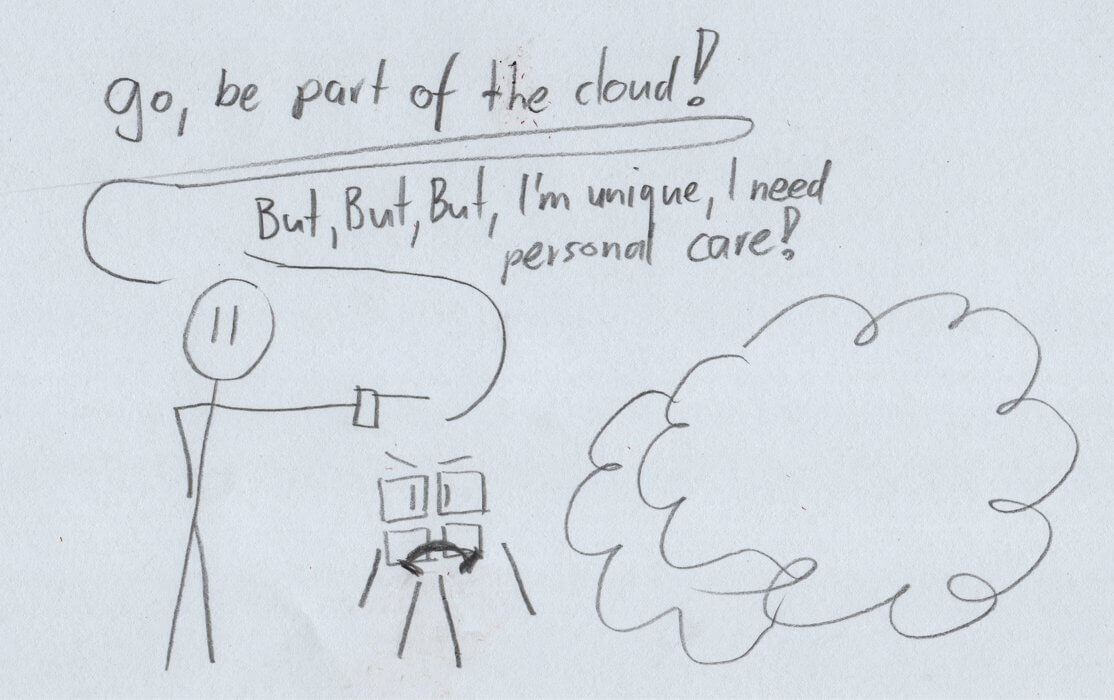 go, be part of the cloud!
But, But, But, I'm unique, I need
personal care!